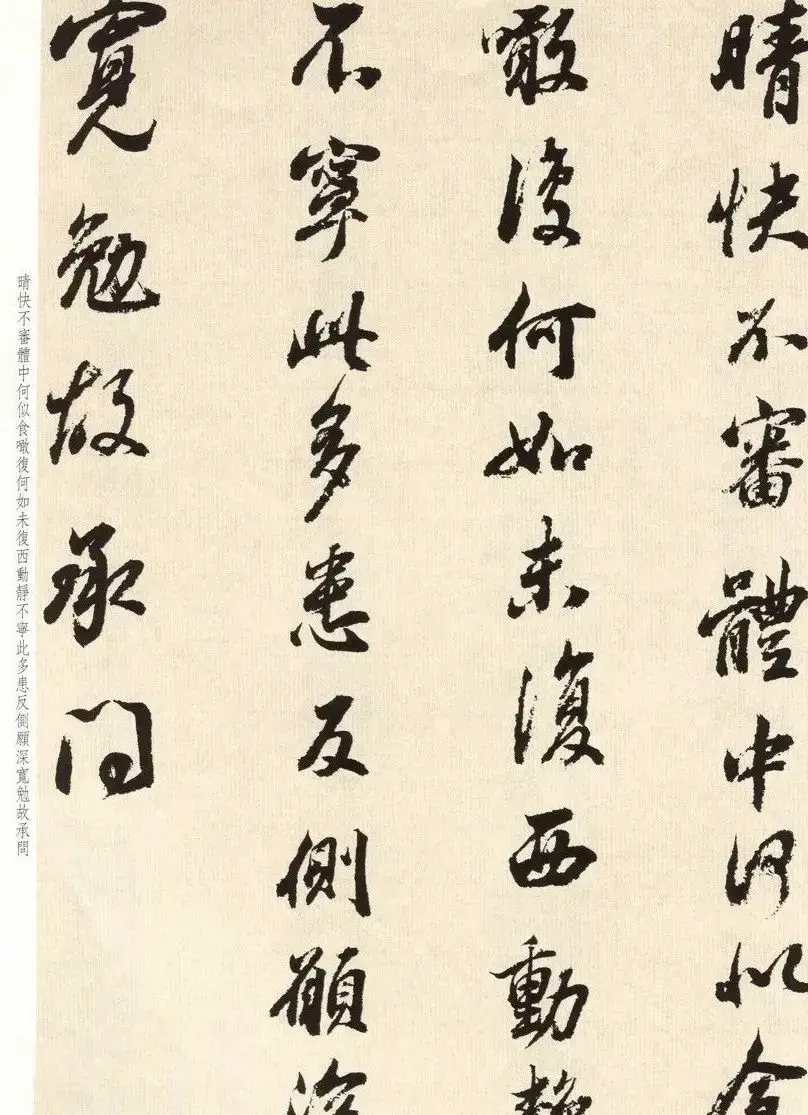 晴快不審體中何似食
噉復何如未復西動靜
不寧此多患反側願深
寬勉故承問
晴快不審體中何似食噉復何如未復西動靜不寧此多患反側願深寬勉故承問